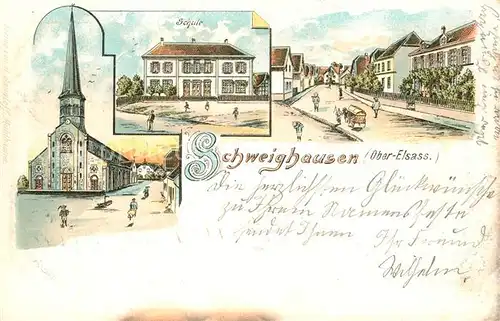 Schule
Schweighausen (Ober-Elsass.)
Die herzlichen Glückwünsche
zu Ihrem Namensfeste
sendet Ihnen Ihr Freund
Wilhelm